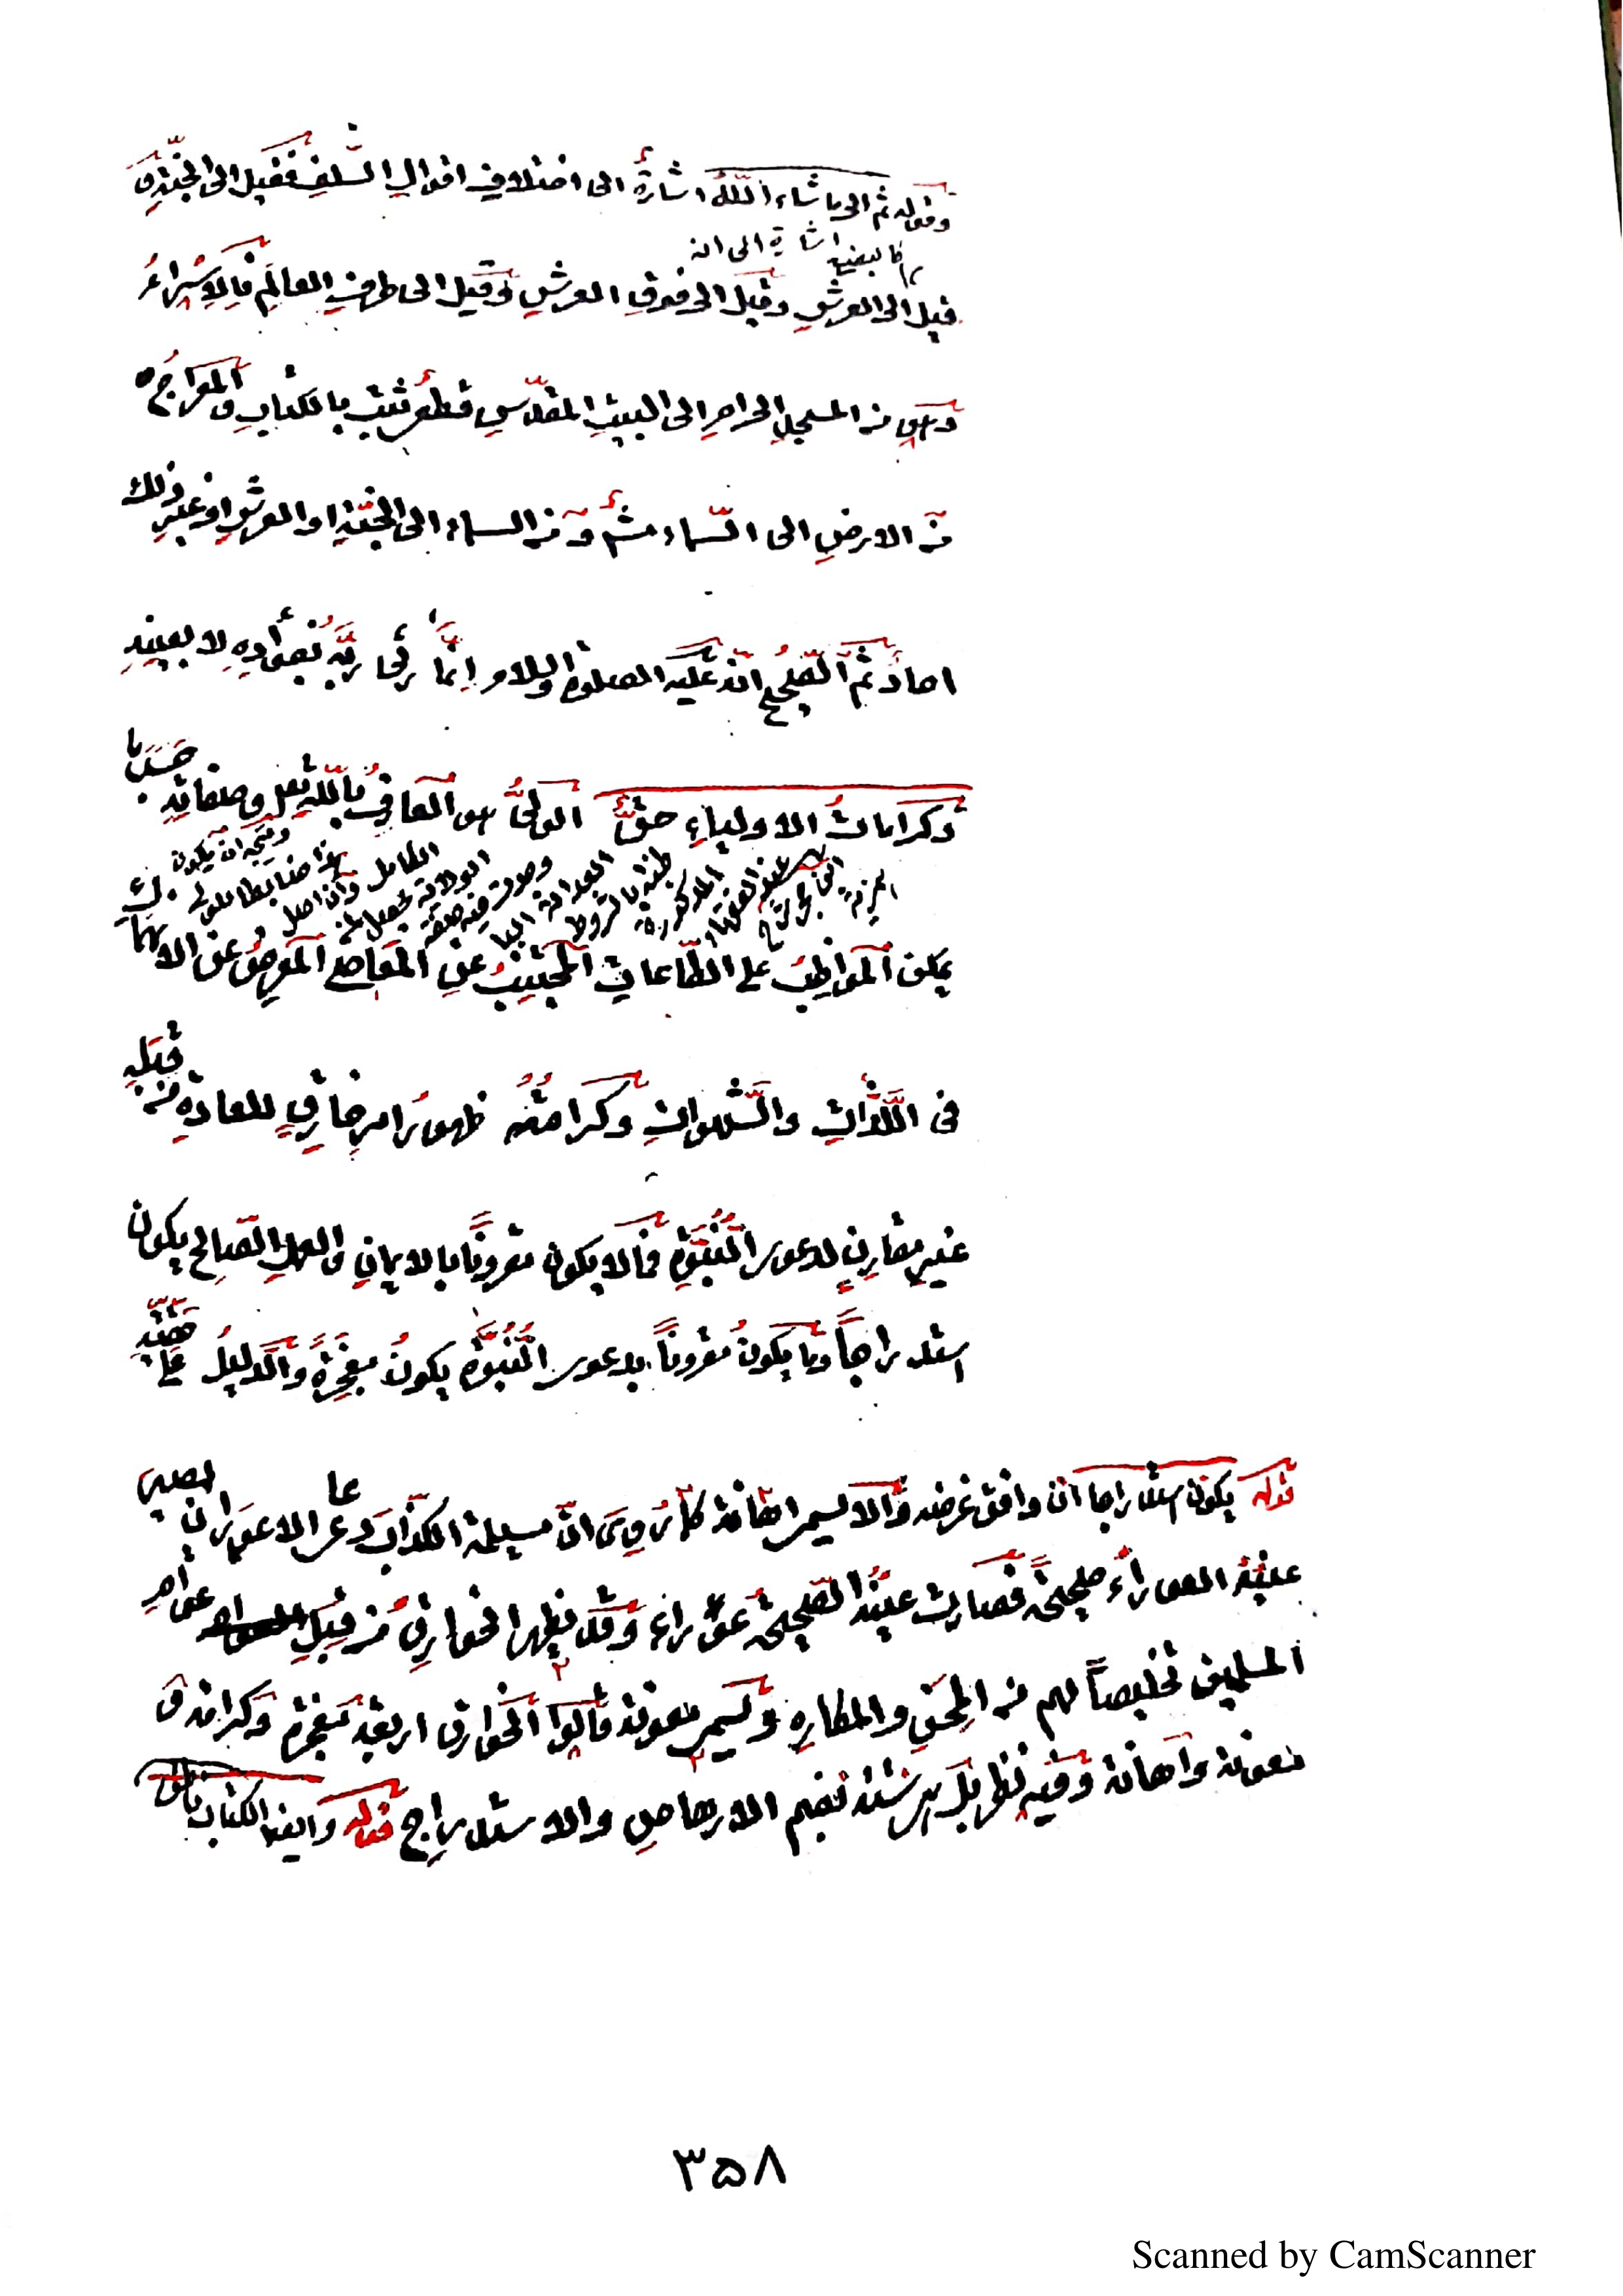 وقوله ثم الى ما شاء الله اشارةٌ الى اختلافِ اقوالِ السَّلفِ فقيل الى الجنّةِ و
اشارة الى ان
قيل الى العرشِ وقيل الى فوقِ العرشِ وقيل الى طرفِ العالَمِ فالاِسْراءُ
وهو من المسجدِ الحرامِ الى البيتِ المقدّسِ قطعىٌّ ثبت بالكتابِ و المعراجُ
من الارضِ الى السّماء مشهورٌ ومن السماء الى الجنّةِ او العرشِ او غيرِ ذلك
احادٌ ثمّ الصّحيحُ انّه عليه الصلوة والسلام اِنّما رأى ربَّه بفُؤادِه لا بعينِه
وكراماتُ الاولياءِ حقٌّ الولىُّ هو العارفُ بالله تعالى وصفاتِه حَسَبَ ما
ويتجه ان يكون
يمكن المواظِبُ على الطّاعاتِ المجتنِبُ عنِ المعاصى المعرِضُ عن الانهماكِ
فى اللَّذّاتِ والشّهواتِ وكرامتُه ظهورُ امرٍ خارقٍ للعادةِ من قِبَلِه
غيرِ مقارنٍ لدعوى النُّبوّةِ فما لا يكون مقرونًا بالايمانِ والعملِ الصّالحِ يكون
استدراجاً وما يكونُ مقروناً بدعوى النُّبوّة يكونُ معجزةً والدّليلُ على حقّيّةِ
قوله يكون استدراجا ان وافق غرضه والّا يسمى اهانة كما رُوِىَ انّ مسيلمة الكذّاب دعى لاعور ان تصير
عينُه العوراءُ صحيحةً فصارت عينُه الصّحيحةُ عوراء وقد يظهر الخوارقُ من قِبَلِ عوامِ
المسلمين تخليصاً لهم من المِحَنِ والمكارِهِ وتسمى معونة قالوا الخوارق اربعة معجزة وكرامة و
معونة واهانة وفيه نظر بل هى ستة بضم الارهاصِ والاستدراج قوله وايضا الكتاب ناطق
٣٥٨
Scanned by CamScanner